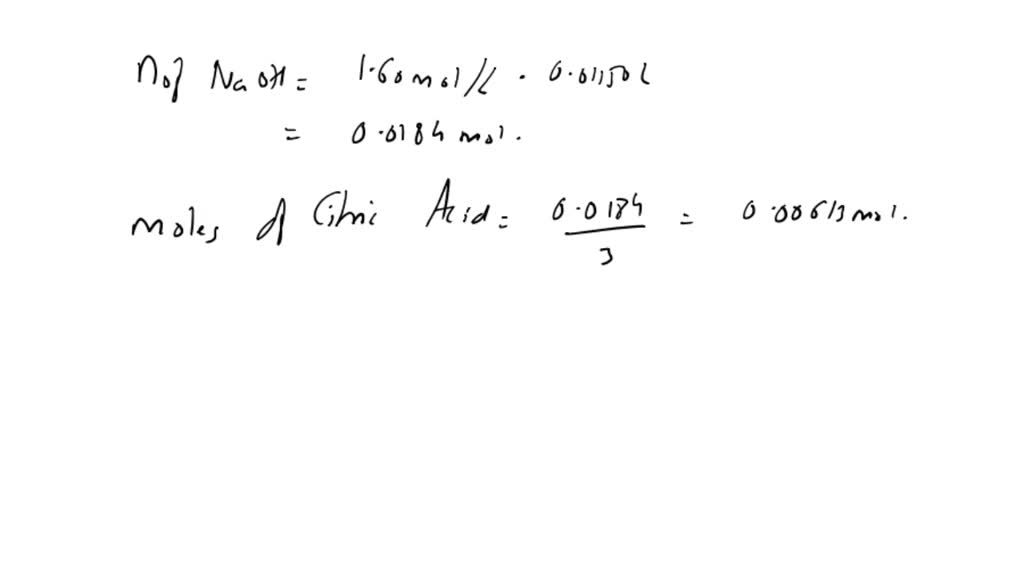 n of NaOH = 1.60 mol/L · 0.01150 L
= 0.0184 mol.
moles of Citric Acid = 0.0184 / 3 = 0.00613 mol.